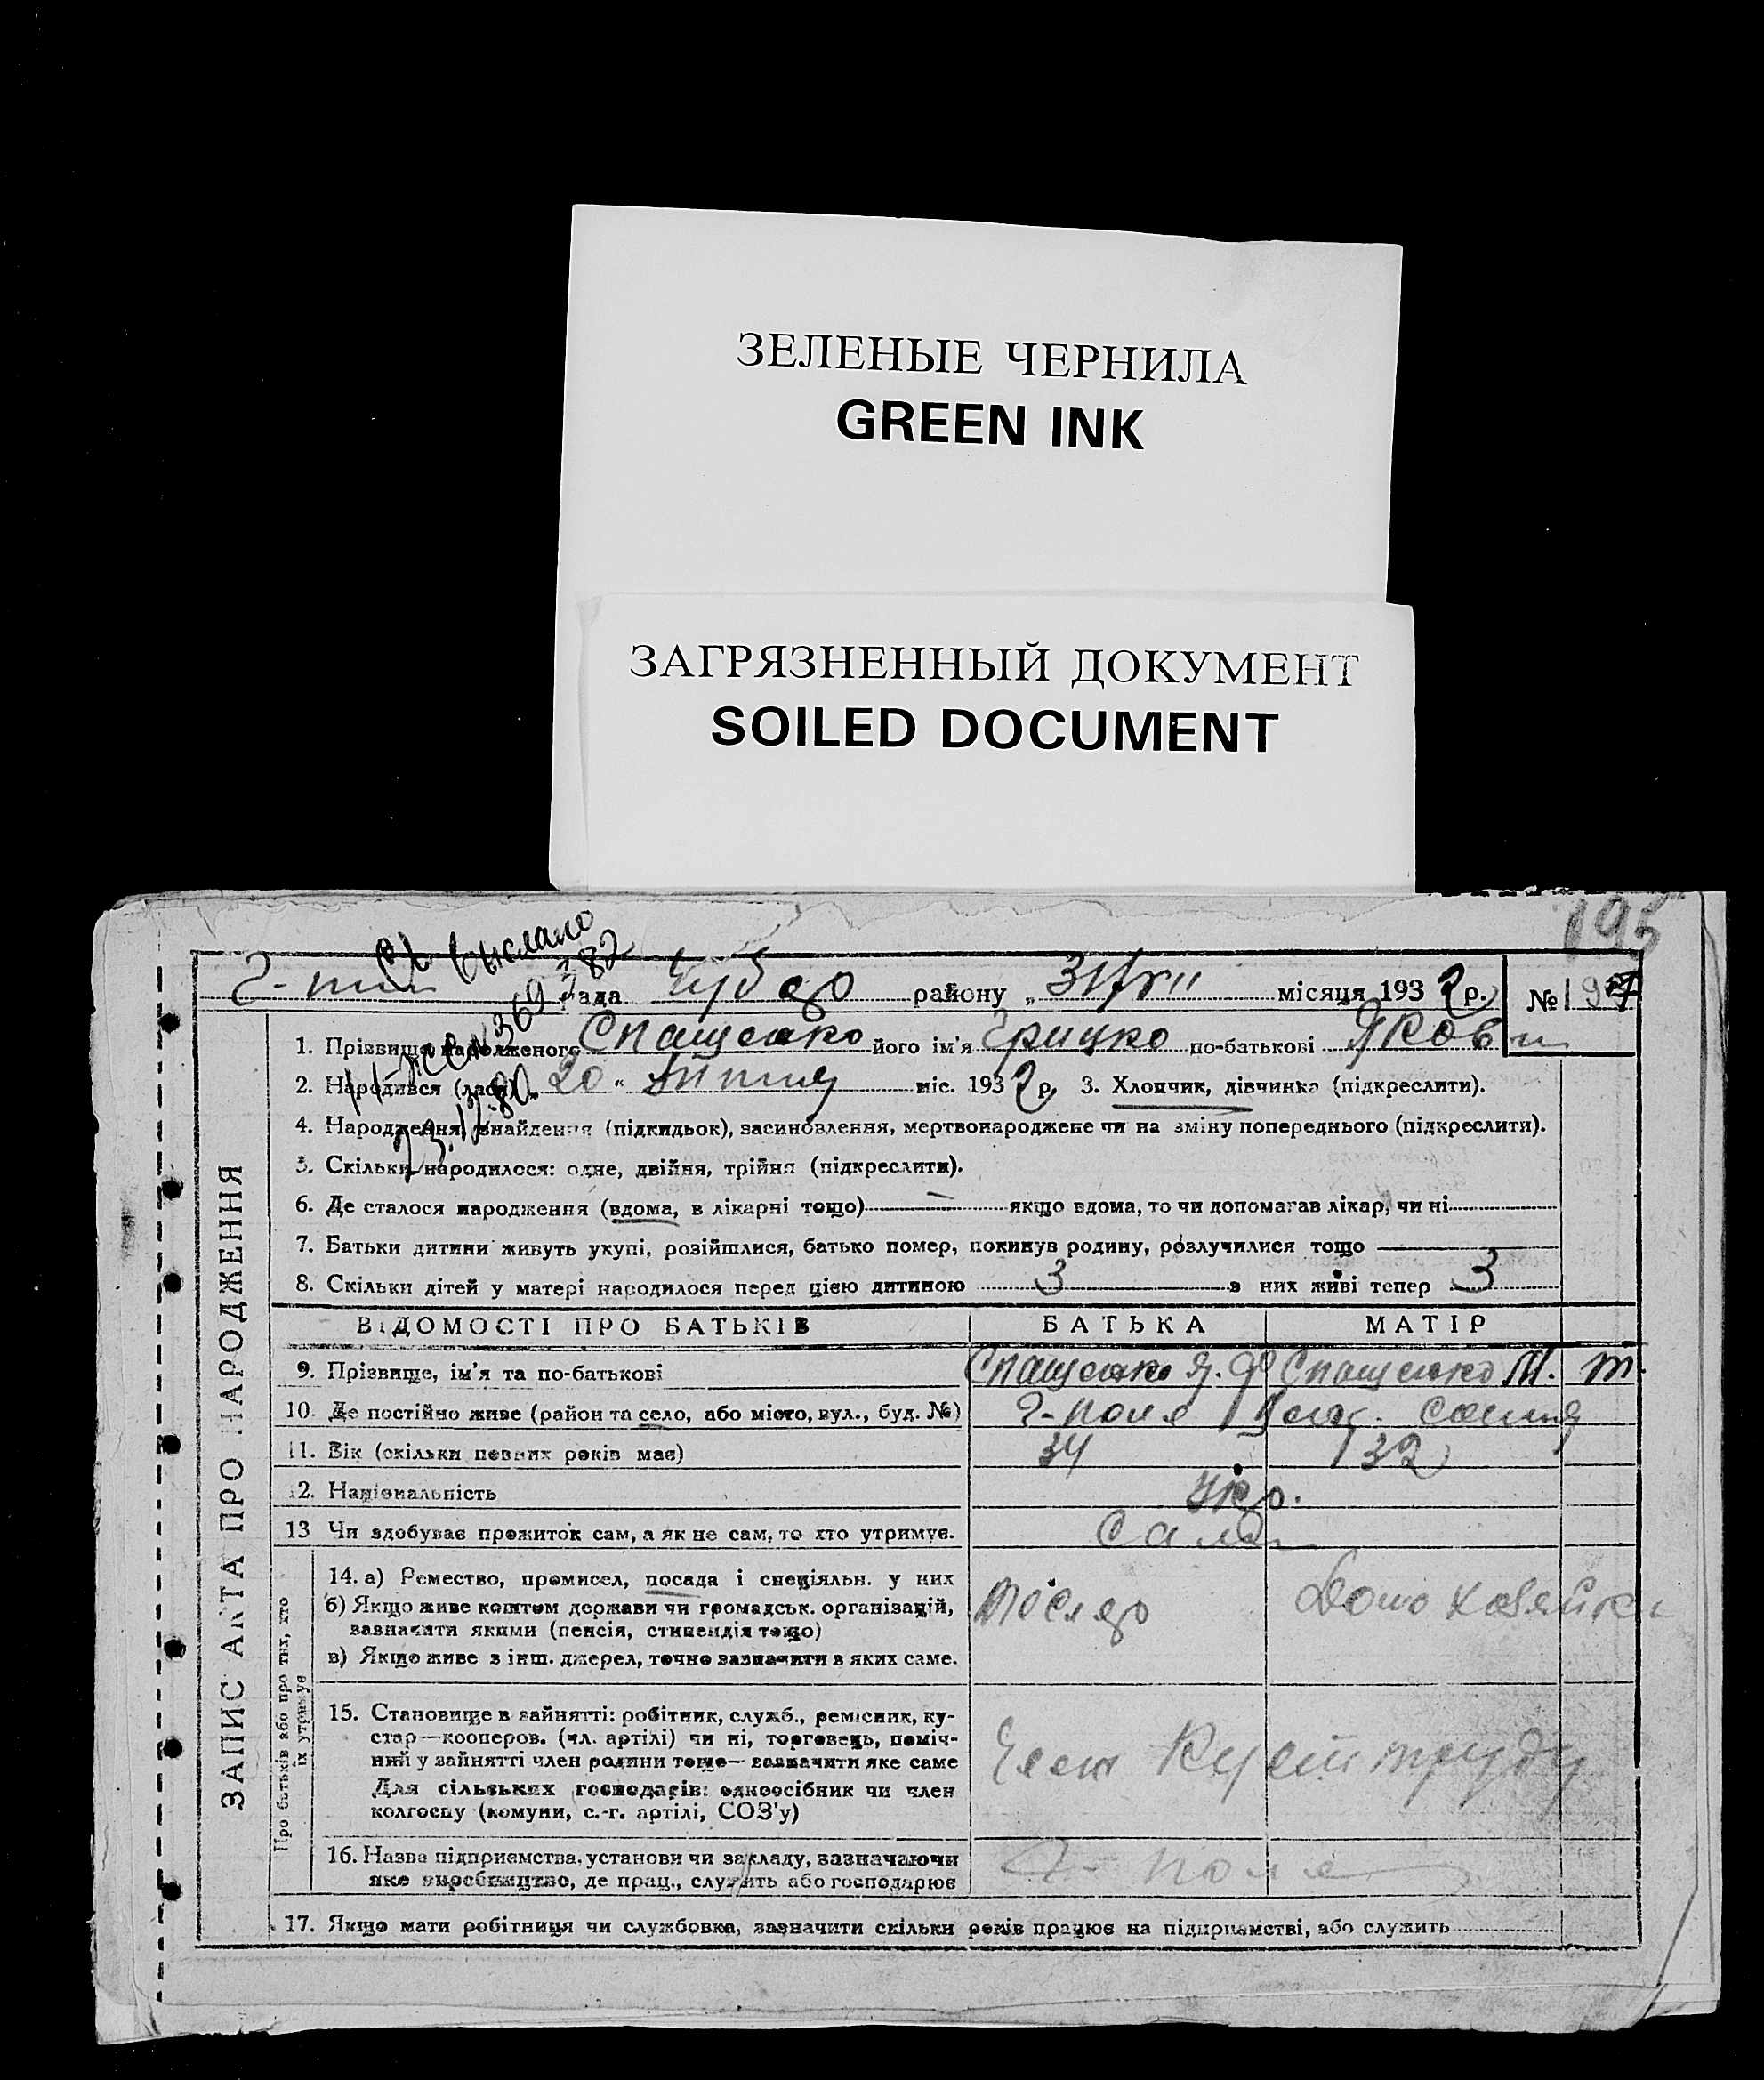 ЗЕЛЕНЫЕ ЧЕРНИЛА
GREEN INK
ЗАГРЯЗНЕННЫЙ ДОКУМЕНТ
SOILED DOCUMENT
195
выслано
рада Чубар району „31/VII місяця 1932 р. № 197
ЗАПИС АКТА ПРО НАРОДЖЕННЯ
1. Прізвище народженого Спащенко його ім'я Грицко по-батькові Яков
2. Народився (лась) 20 “ липня міс. 1932 р. 3. Хлопчик, дівчинка (підкреслити).
4. Народження, знайдення (підкидьок), засиновлення, мертвонароджене чи на зміну попереднього (підкреслити).
5. Скільки народилося: одне, двійня, трійня (підкреслити).
6. Де сталося народження (вдома, в лікарні тощо) — якщо вдома, то чи допомагав лікар, чи ні
7. Батьки дитини живуть укупі, розійшлися, батько помер, покинув родину, розлучилися тощо
8. Скільки дітей у матері народилося перед цією дитиною 3 з них живі тепер 3
ВІДОМОСТІ ПРО БАТЬКІВ БАТЬКА МАТІР
9. Прізвище, ім'я та по-батькові Спащенко Я. Ф Спащенко М. Т.
10. Де постійно живе (район та село, або місто, вул., буд. №) Г-поле
11. Вік (скільки певних років має) 34 32
12. Національність Укр.
13 Чи здобуває прожиток сам, а як не сам, то хто утримує. Сам
Про батьків або про тих, хто їх утримує
14. а) Ремество, промисел, посада і спеціяльн. у них
б) Якщо живе коштом держави чи громадськ. організацій,
зазначити якими (пенсія, стипендія тощо)
в) Якщо живе з інш. джерел, точно зазначити в яких саме.
Домохозяйка
15. Становище в зайнятті: робітник, служб., ремісник, ку-
стар—кооперов. (чл. артілі) чи ні, торговець, поміч-
ний у зайнятті член родини тощо— зазначити яке саме
Для сільських господарів: одноосібник чи член
колгоспу (комуни, с.-г. артілі, СОЗ'у)
Член труду
16. Назва підприємства, установи чи закладу, зазначаючи
яке виробництво, де прац., служить або господарює
Г- поле
17. Якщо мати робітниця чи службовка, зазначити скільки років працює на підприємстві, або служить